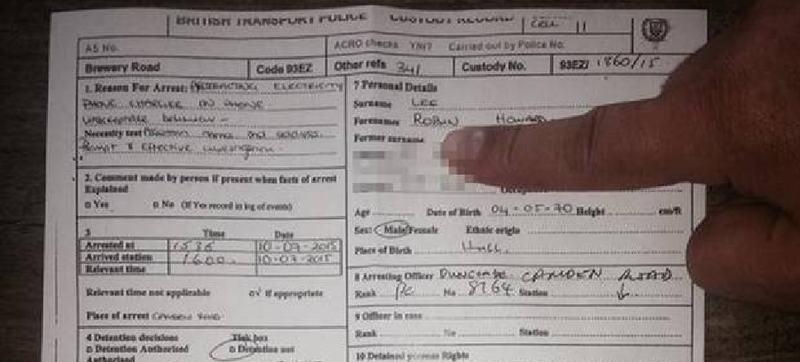 BRITISH TRANSPORT POLICE CUSTODY RECORD
CELL 11
AS No.
ACRO checks Y/N? Carried out by Police No.
Brewery Road Code 93EZ Other refs 341 Custody No. 93EZ/ 1860/15
1. Reason For Arrest: ABSTRACTING ELECTRICITY
PHONE CHARGER ON
UNACCEPTABLE BEHAVIOUR -
Necessity test and address
Prompt & Effective investigation
2. Comment made by person if present when facts of arrest
Explained
Yes No (If Yes record in log of events)
3 Time Date
Arrested at 1536 10-07-2015
Arrived station 1600. 10-07-2015
Relevant time
Relevant time not applicable √ if appropriate
Place of arrest CAMDEN ROAD
4 Detention decisions Tick box
Detention Authorised Detention not
Authorised
7 Personal Details
Surname LEE
Forenames ROBIN
Former surname
Age Date of Birth 04-05-70 Height cm/ft
Sex: Male/Female Ethnic origin
Place of Birth Hull
8 Arresting Officer DUNCOMBE CAMDEN ROAD
Rank PC No 8764 Station ↓
9 Officer in case
Rank No Station
10 Detained persons Rights